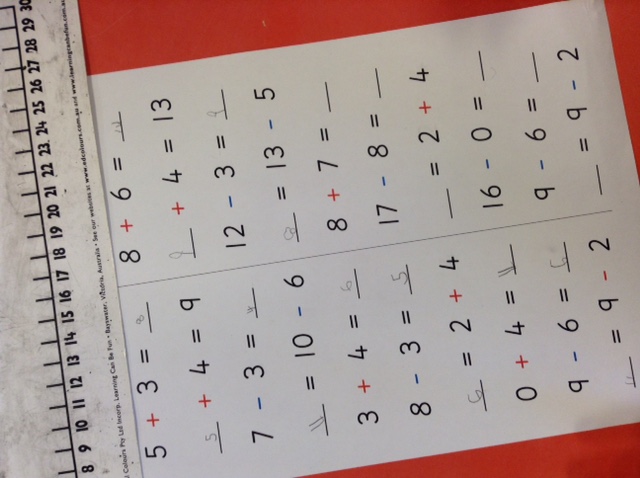 8 9 10 11 12 13 14 15 16 17 18 19 20 21 22 23 24 25 26 27 28 29 30
Colours Pty Ltd Incorp. Learning Can Be Fun • Bayswater, Victoria, Australia • See our websites at www.edcolours.com.au and www.learningcanbefun.com.au
5 + 3 = 8
5 + 4 = 9
7 - 3 = 4
4 = 10 - 6
3 + 4 = 6
8 - 3 = 5
6 = 2 + 4
0 + 4 = 4
9 - 6 =
= 9 - 2
8 + 6 =
9 + 4 = 13
12 - 3 = 9
8 = 13 - 5
8 + 7 = __
17 - 8 = __
__ = 2 + 4
16 - 0 = __
9 - 6 = __
__ = 9 - 2